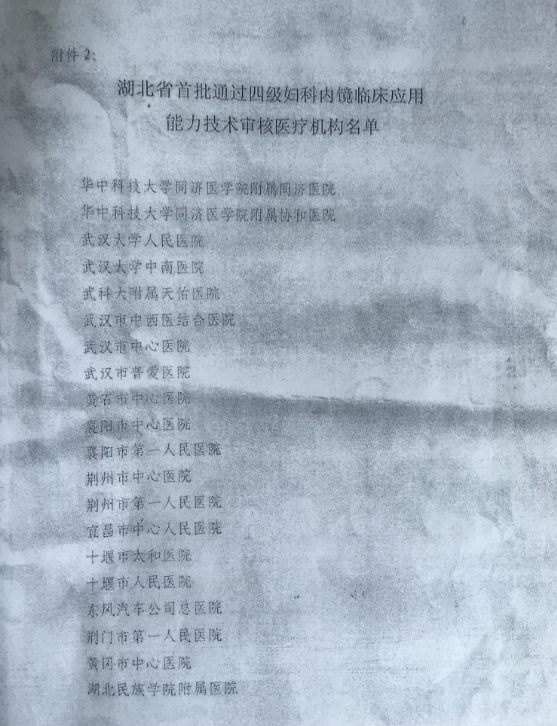 附件 2:
湖北省首批通过四级妇科内镜临床应用
能力技术审核医疗机构名单
华中科技大学同济医学院附属同济医院
华中科技大学同济医学院附属协和医院
武汉大学人民医院
武汉大学中南医院
武科大附属天佑医院
武汉市中西医结合医院
武汉市中心医院
武汉市普爱医院
黄石市中心医院
襄阳市中心医院
襄阳市第一人民医院
荆州市中心医院
荆州市第一人民医院
宜昌市中心人民医院
十堰市太和医院
十堰市人民医院
东风汽车公司总医院
荆门市第一人民医院
黄冈市中心医院
湖北民族学院附属医院